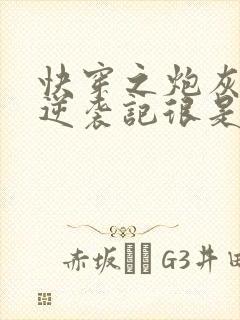 快穿之炮灰
逆袭記很是
赤坂 G3井田